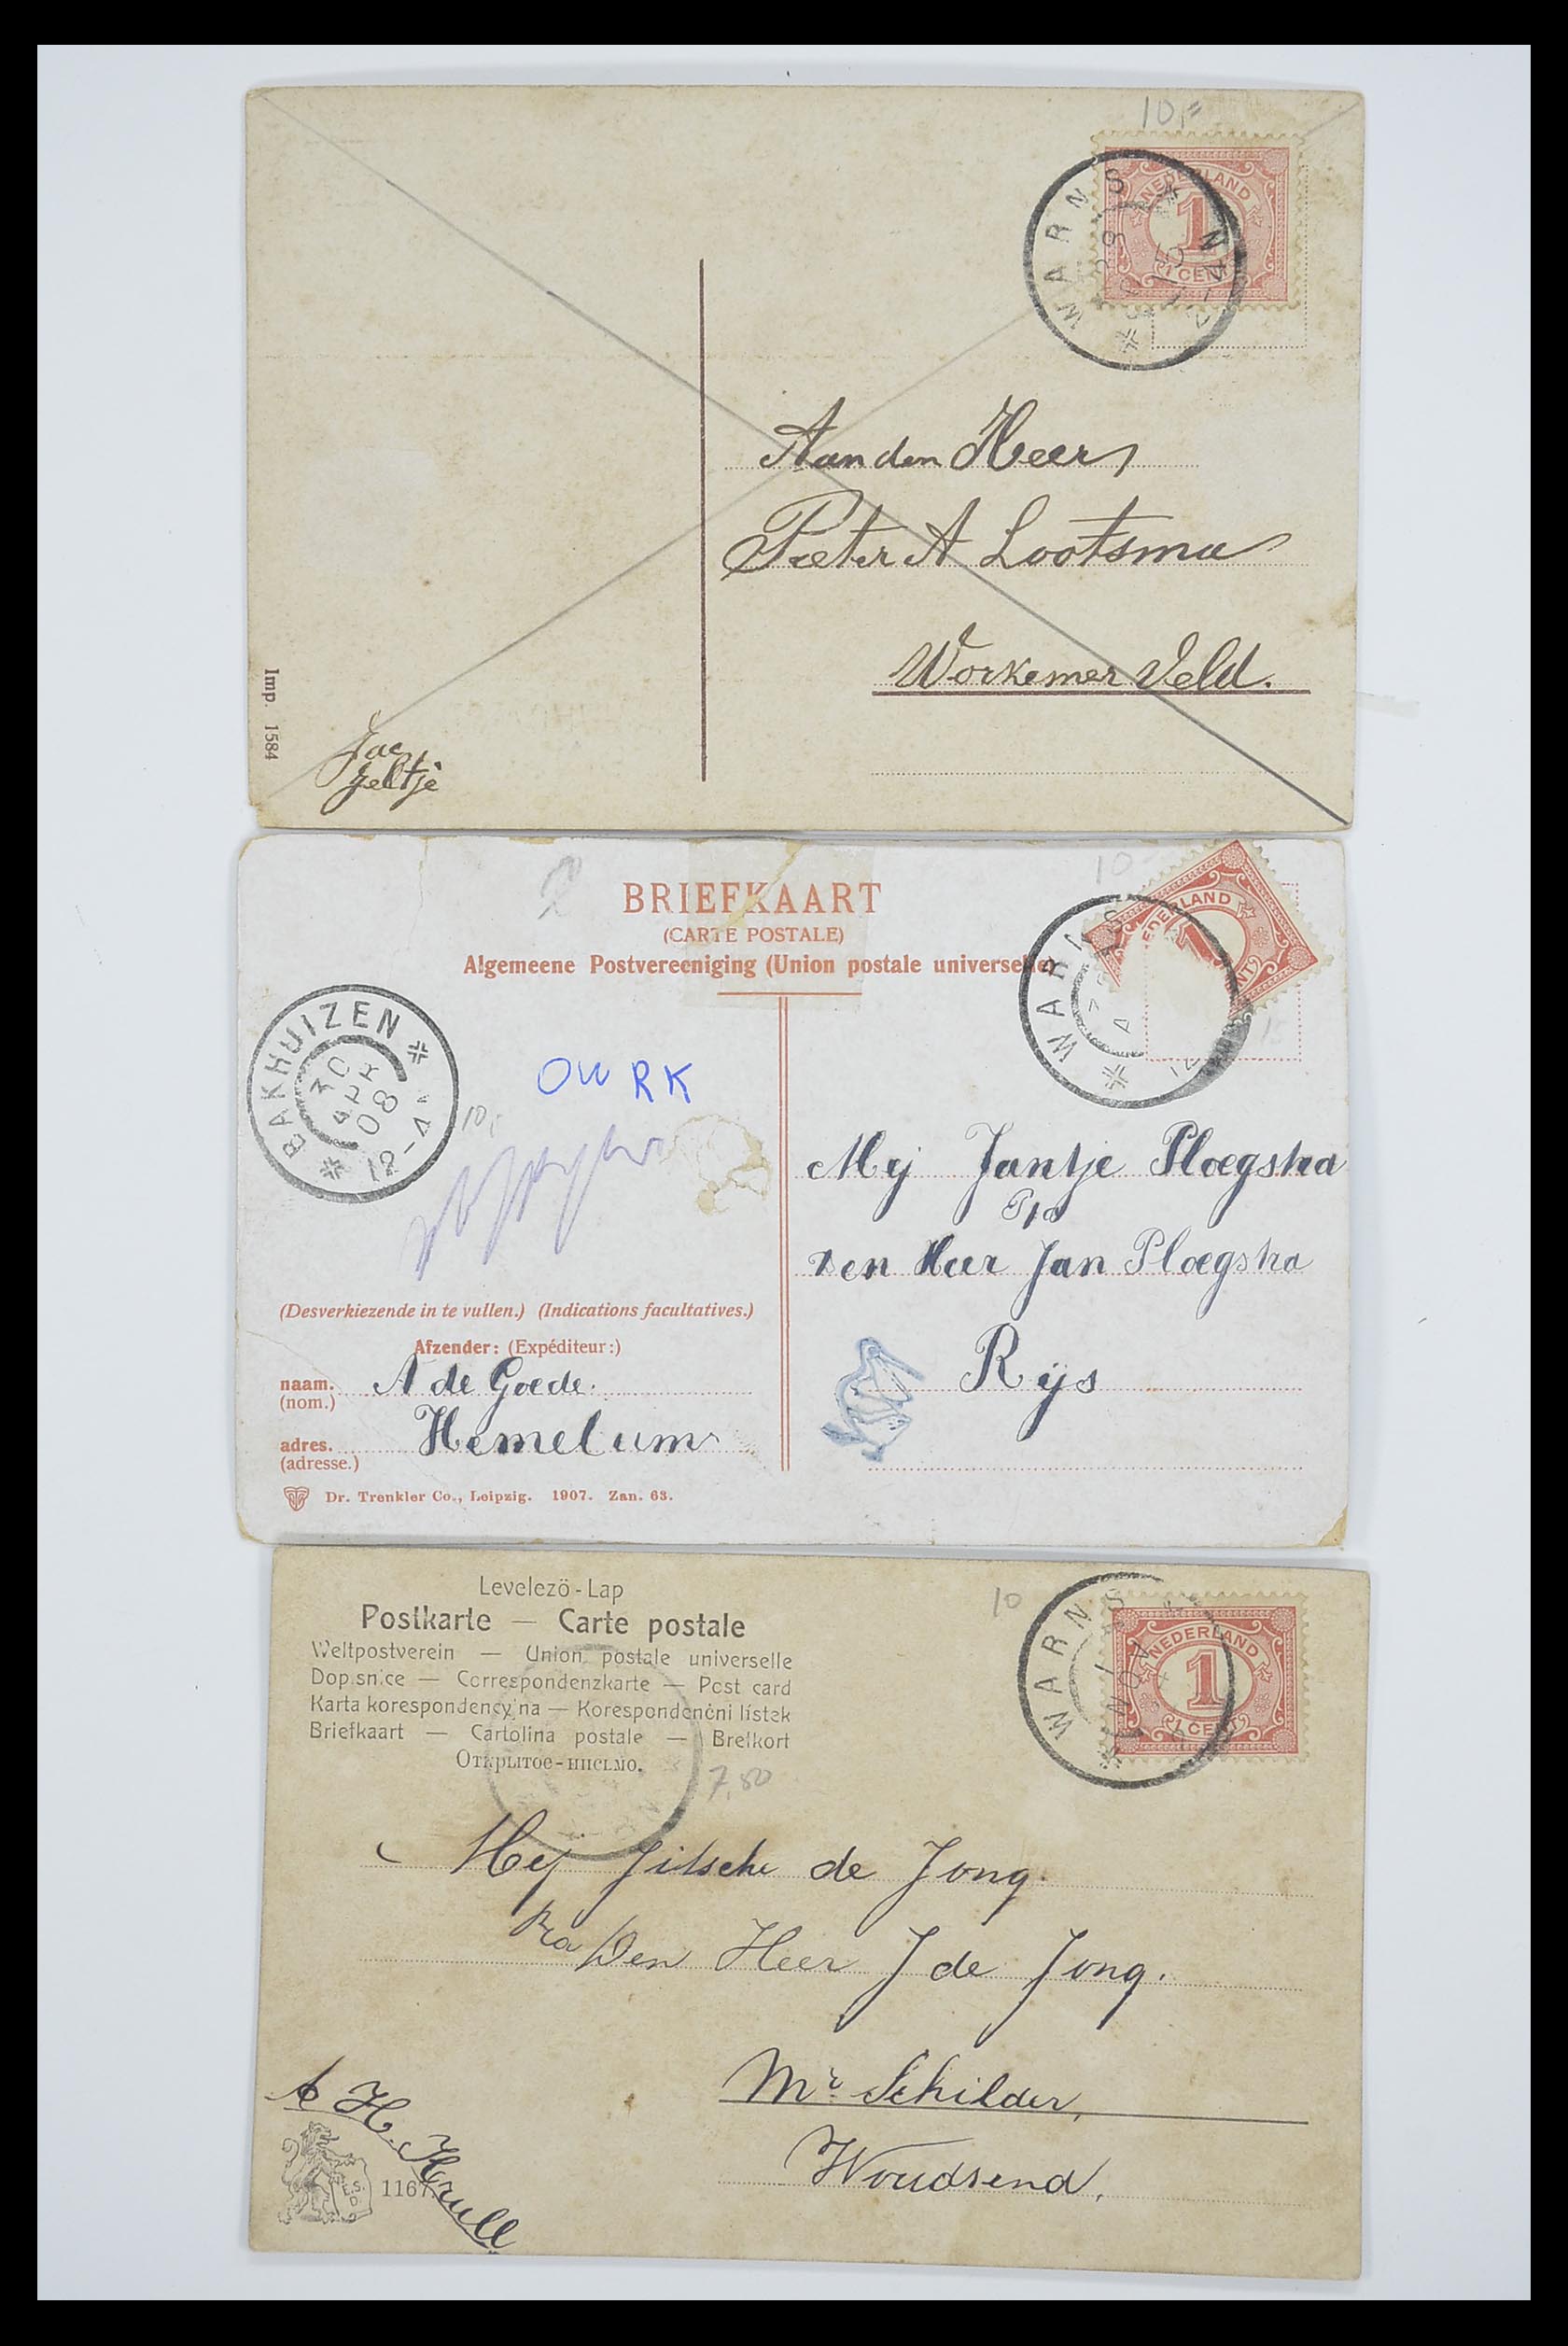 10,=
NEDERLAND
1
1 CENT
WARNS
Aan den Heer
Pieter A Lootsma
Workemer Veld.
Imp. 1584
Jac
Jeltje
BRIEFKAART
(CARTE POSTALE)
Algemeene Postvereeniging (Union postale universelle)
10
NEDERLAND
1
WARNS
BAKHUIZEN
30
APR
08
12-V
10,-
OW RK
Mej Jantje Ploegstra
P/a
den Heer Jan Ploegstra
Rijs
(Desverkiezende in te vullen.) (Indications facultatives.)
Afzender: (Expéditeur:)
naam. A de Goede.
(nom.)
adres. Hemelum
(adresse.)
Dr. Trenkler Co., Leipzig. 1907. Zan. 63.
Levelezö-Lap
Postkarte — Carte postale
Weltpostverein — Union postale universelle
Dopisnice — Correspondenzkarte — Post card
Karta korespondencyjna — Korespondenčni lístek
Briefkaart — Cartolina postale — Brefkort
Открытое-письмо.
10
7,50
NEDERLAND
1
1 CENT
WARNS
1
NOV
Mej Jitsche de Jong.
P/a Den Heer J de Jong.
Mr Schilder,
Woudsend,
A H. Krull
1167.